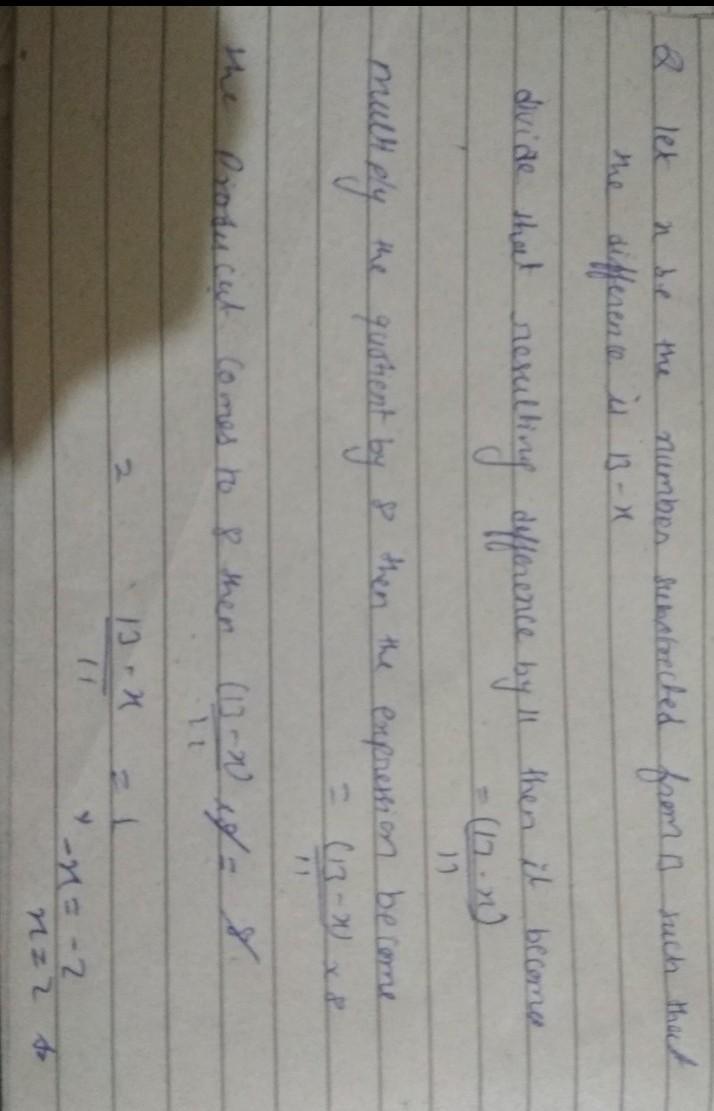 2 let x be the number substracted from 13 such that
the difference is 13 - x
divide that resulting difference by 11 then it become
= (13 - x)
11
multiply the quotient by 8 then the expression become
= (13 - x) x 8
11
the producut comes to 8 then (13 - x) x 8 = 8
11
2 13 - x = 1
11
- x = - 2
x = 2